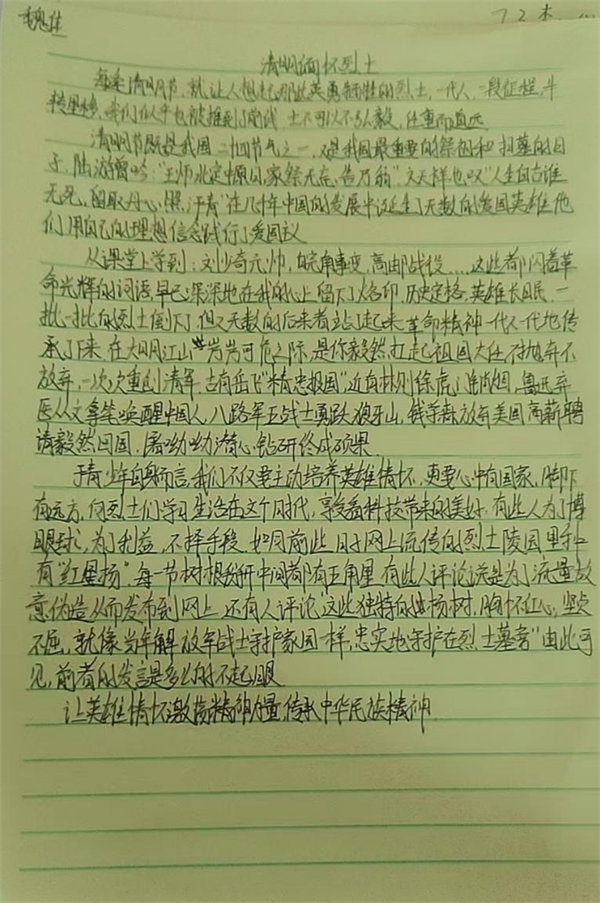 清明缅怀烈士
每乘清明节,就让人想起那些英勇牺牲的烈士,一代人,一段征程,斗
转星移,我们似乎也被推到了前线 士不可以不弘毅,任重而道远
清明节既是我国二十四节气之一,又是我国最重要的祭祖和扫墓的日
子,陆游曾吟:"王师北定中原日,家祭无忘告乃翁",文天祥也叹"人生自古谁
无死,留取丹心照汗青"在几千年中国的发展中诞生了无数的爱国英雄他
们用自己的理想信念践行了爱国义
从课堂上学到:刘少奇元帅,皖南事变,高邮战役……这些都闪着革
命光辉的词语,早已深深地在我的心上留下了烙印,历史定格,英雄长眠,一
批一批的烈士倒下了,但又无数的后来者站了起来革命精神一代一代地传
承了下来,在大明江山"岌岌可危之际,是你毅然扛起祖国大任不抛弃不
放弃,一次次重创清军,古有岳飞"精忠报国"近有林则徐虎门销烟,鲁迅弃
医从文拿笔唤醒中国人,八路军五战士勇跃狼牙山,钱学森放弃美国高薪聘
请毅然回国,潜心钻研终成硕果
于青少年自身而言,我们不仅要主动培养英雄情怀,更要心中有国家,脚下
有远方,向烈士们学习生活在这个时代,享受着科技带来的美好,有些人为了博
眼球,为了利益,不择手段,如前些日子网上流传的烈士陵园里种
有"红星杨"每一节树根掰开中间都有五角星有些人评论说是为了流量故
意伪造从而发布到网上,还有人评论,这些独特的杨树,胸怀红心,坚贞
不屈,就像当年解放军战士守护家国一样,忠实地守护在烈士墓旁"由此可
见,前者的发言是多么的不起眼
让英雄情怀激荡精神力量,传承中华民族精神